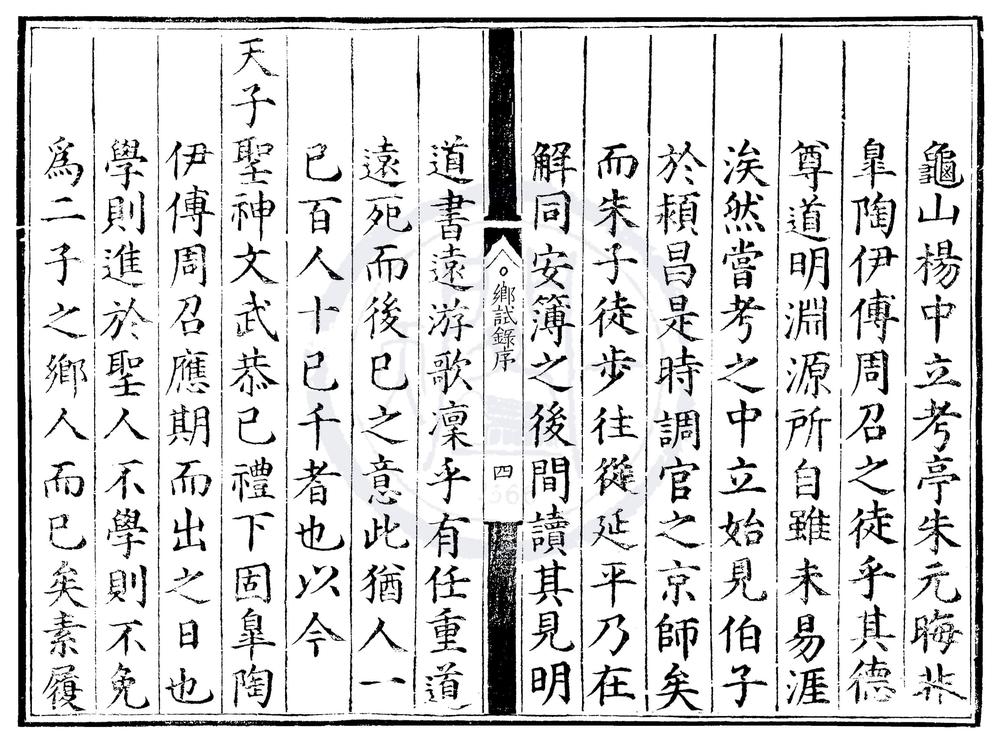 龜山楊中立考亭朱元晦非
臯陶伊傅周召之徒乎其德
尊道明淵源所自雖未易涯
涘然嘗考之中立始見伯子
於頴昌是時調官之京師矣
而朱子徒步往從延平乃在
解同安簿之後間讀其見明
鄉試錄序
四
道書遠游歌凜乎有任重道
遠死而後已之意此猶人一
已百人十已千者也以今
天子聖神文武恭已禮下固臯陶
伊傅周召應期而出之日也
學則進於聖人不學則不免
爲二子之鄉人而已矣素履